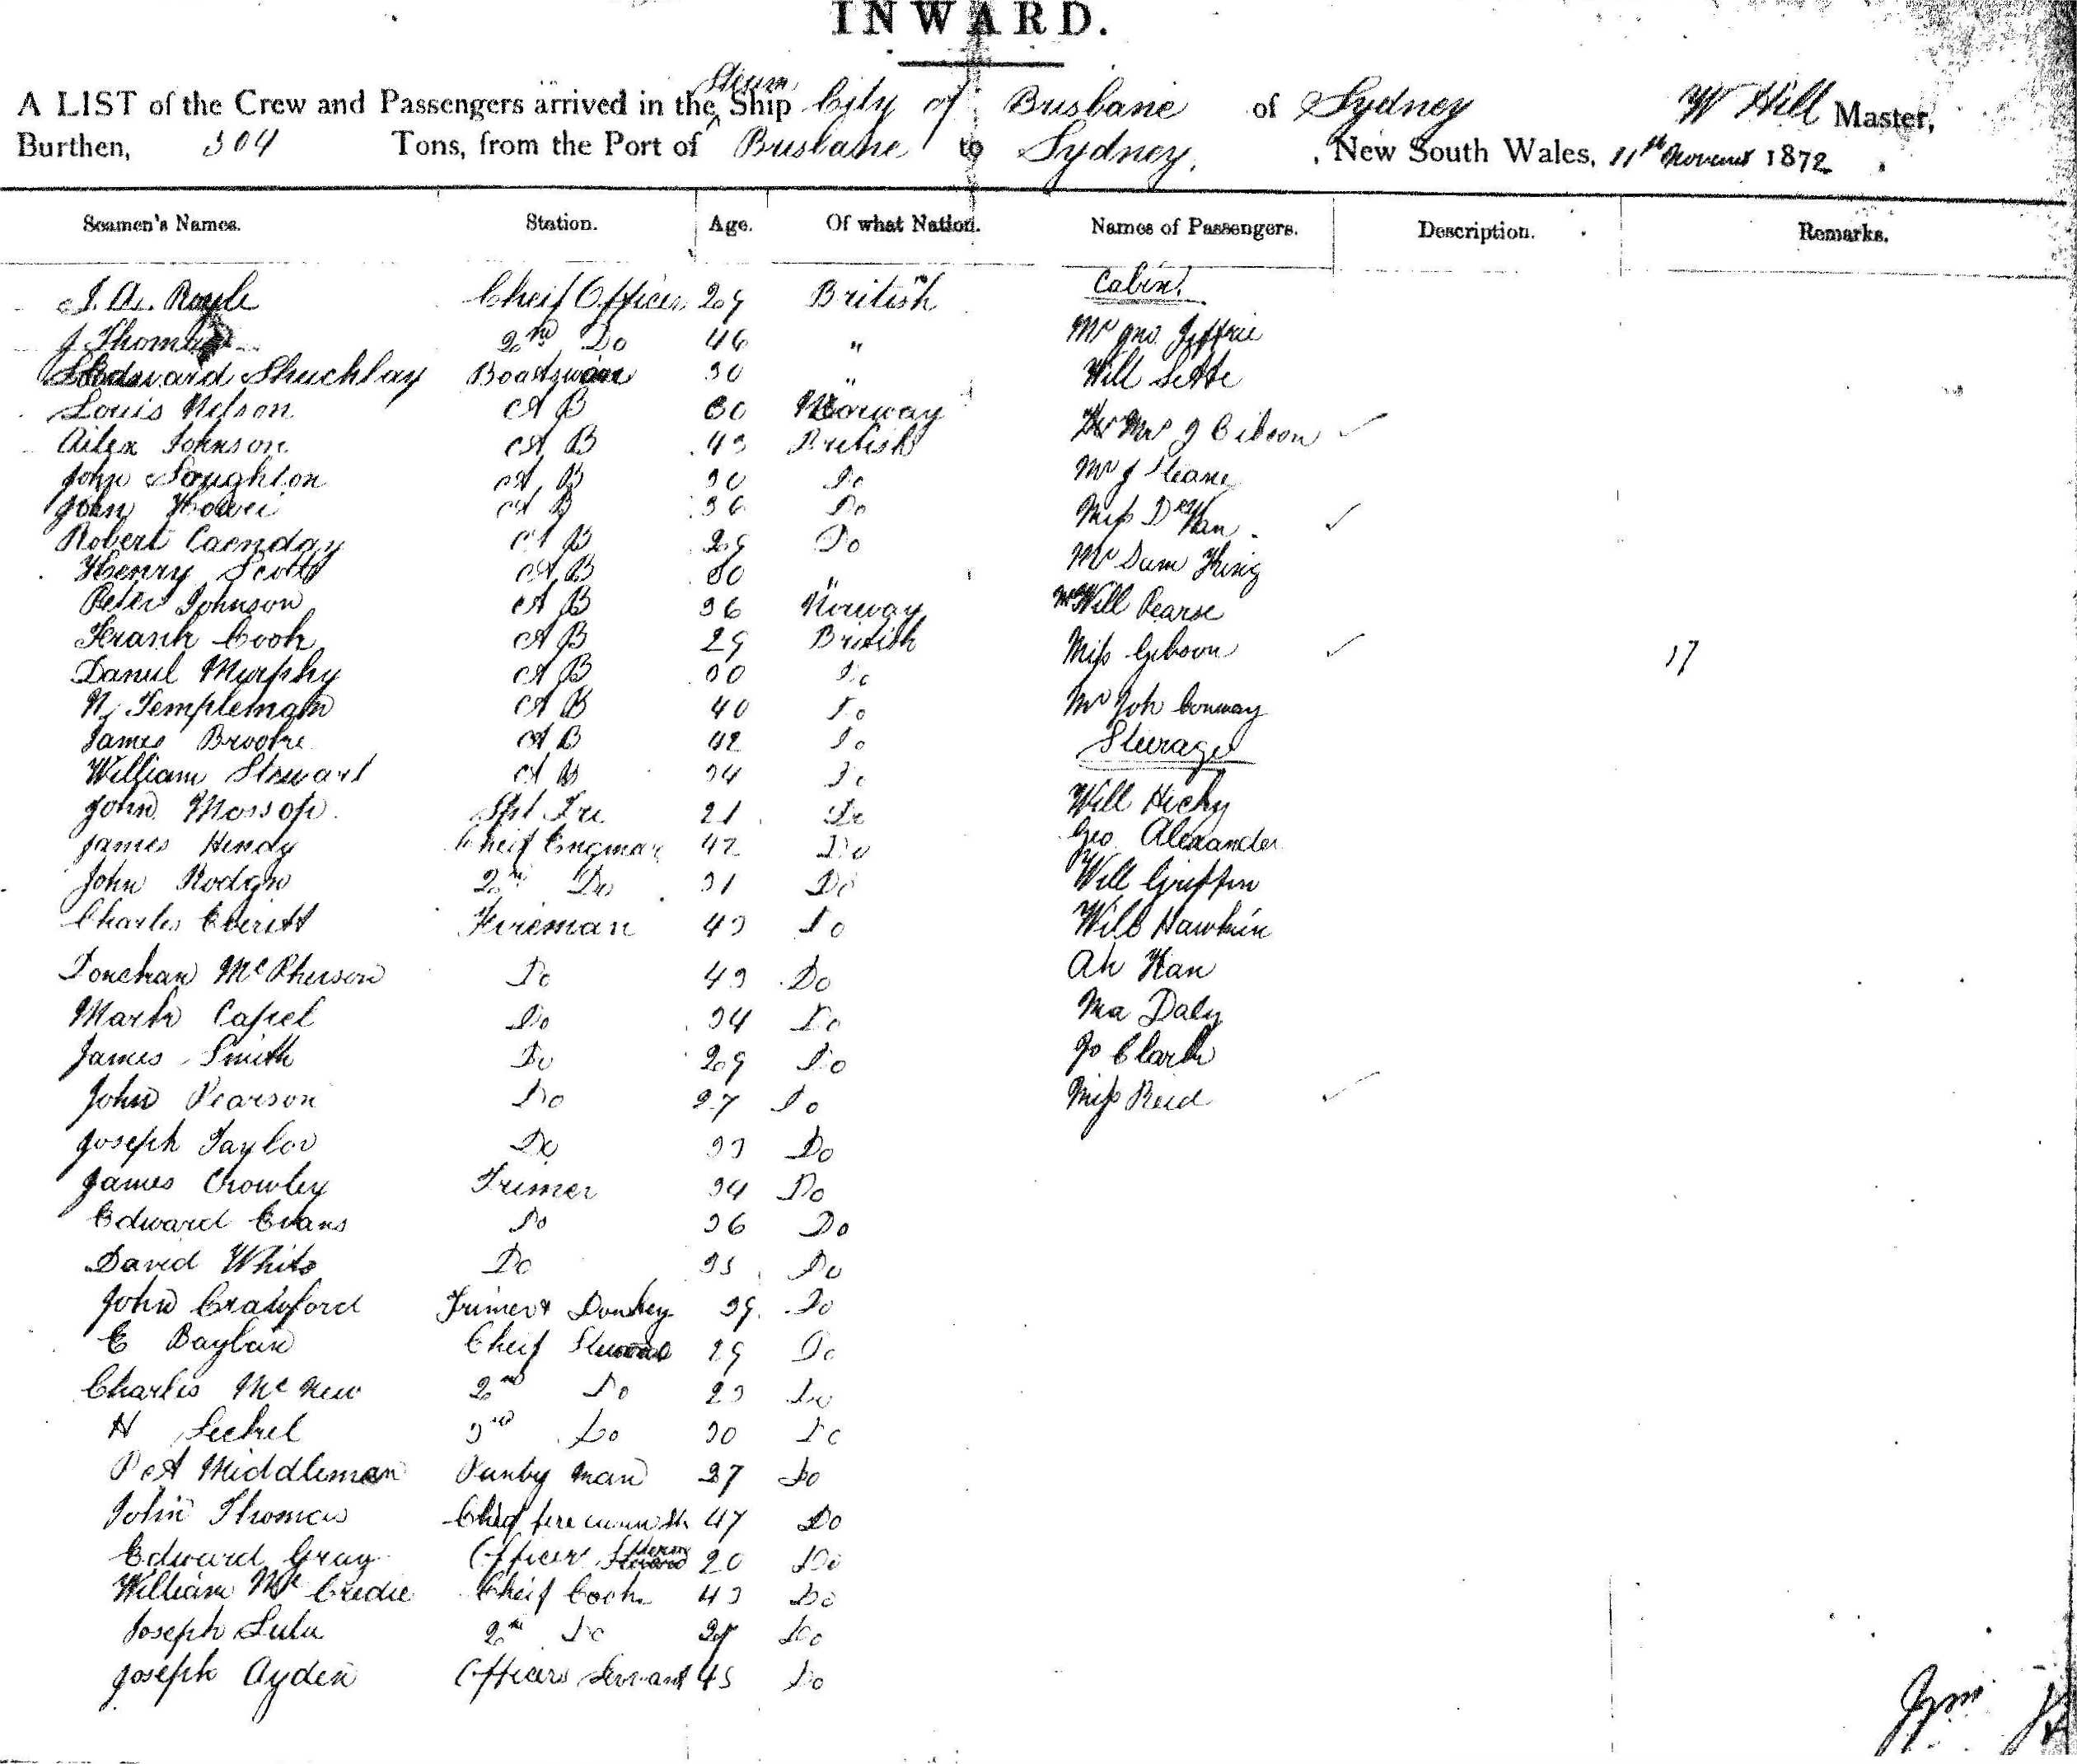 INWARD.
A LIST of the Crew and Passengers arrived in the Steam Ship City of Brisbane of Sydney W Hill Master,
Burthen, 504 Tons, from the Port of Brisbane to Sydney, New South Wales, 11th November 1872
Seamen's Names. Station. Age. Of what Nation. Names of Passengers. Description. Remarks.
Cabin.
J. A. Royle Cheif Officer 29 British
J Thomas 2nd Do 46 " Mr Jno. Jeffrie
Edward Boatswain 30 " Will
Louis Nelson A B 30 Norway
Johnson A B 43 British Mr J Gibson
John Soughton A B 30 Do Mr J
John A B 36 Do Miss
Robert A B 29 Do
Henry Scott A B 30 " Mr Sam King
Peter Johnson A B 36 Norway Mr Will Pearse
Frank Cook A B 29 British Miss Gibson 17
Daniel Murphy A B 30 Do
N. Templeman A B 40 Do Mr Joh Conway
James Brooke A B 42 Do Steerage
William Stewart A B 34 Do
John Mossop 21 Do Will Hichy
James Hendy Cheif 42 Do Geo Alexander
John 2nd Do 31 Do Will Griffin
Charles Everitt Fireman 43 Do Will Hawkin
McPherson Do 43 Do Ah Han
Mark Capel Do 34 Do Ma Daly
James Smith Do 29 Do Jo Clark
John Pearson Do 27 Do Miss Reid
Joseph Taylor Do 33 Do
James Crowley Trimer 34 Do
Edward Evans Do 36 Do
David White Do 35 Do
John Crawford Trimer & Donkey 39 Do
E Cheif 29 Do
Charles Mc New 2nd Do 23 Do
H 3rd Do 30 Do
P A Middleman man 27 Do
John Thomas 47 Do
Edward Gray Officer 20 Do
William Mc Credie Cheif Cook 43 Do
Joseph Lulu 2nd Do Do
Joseph Ayden Officers Servant 45 Do